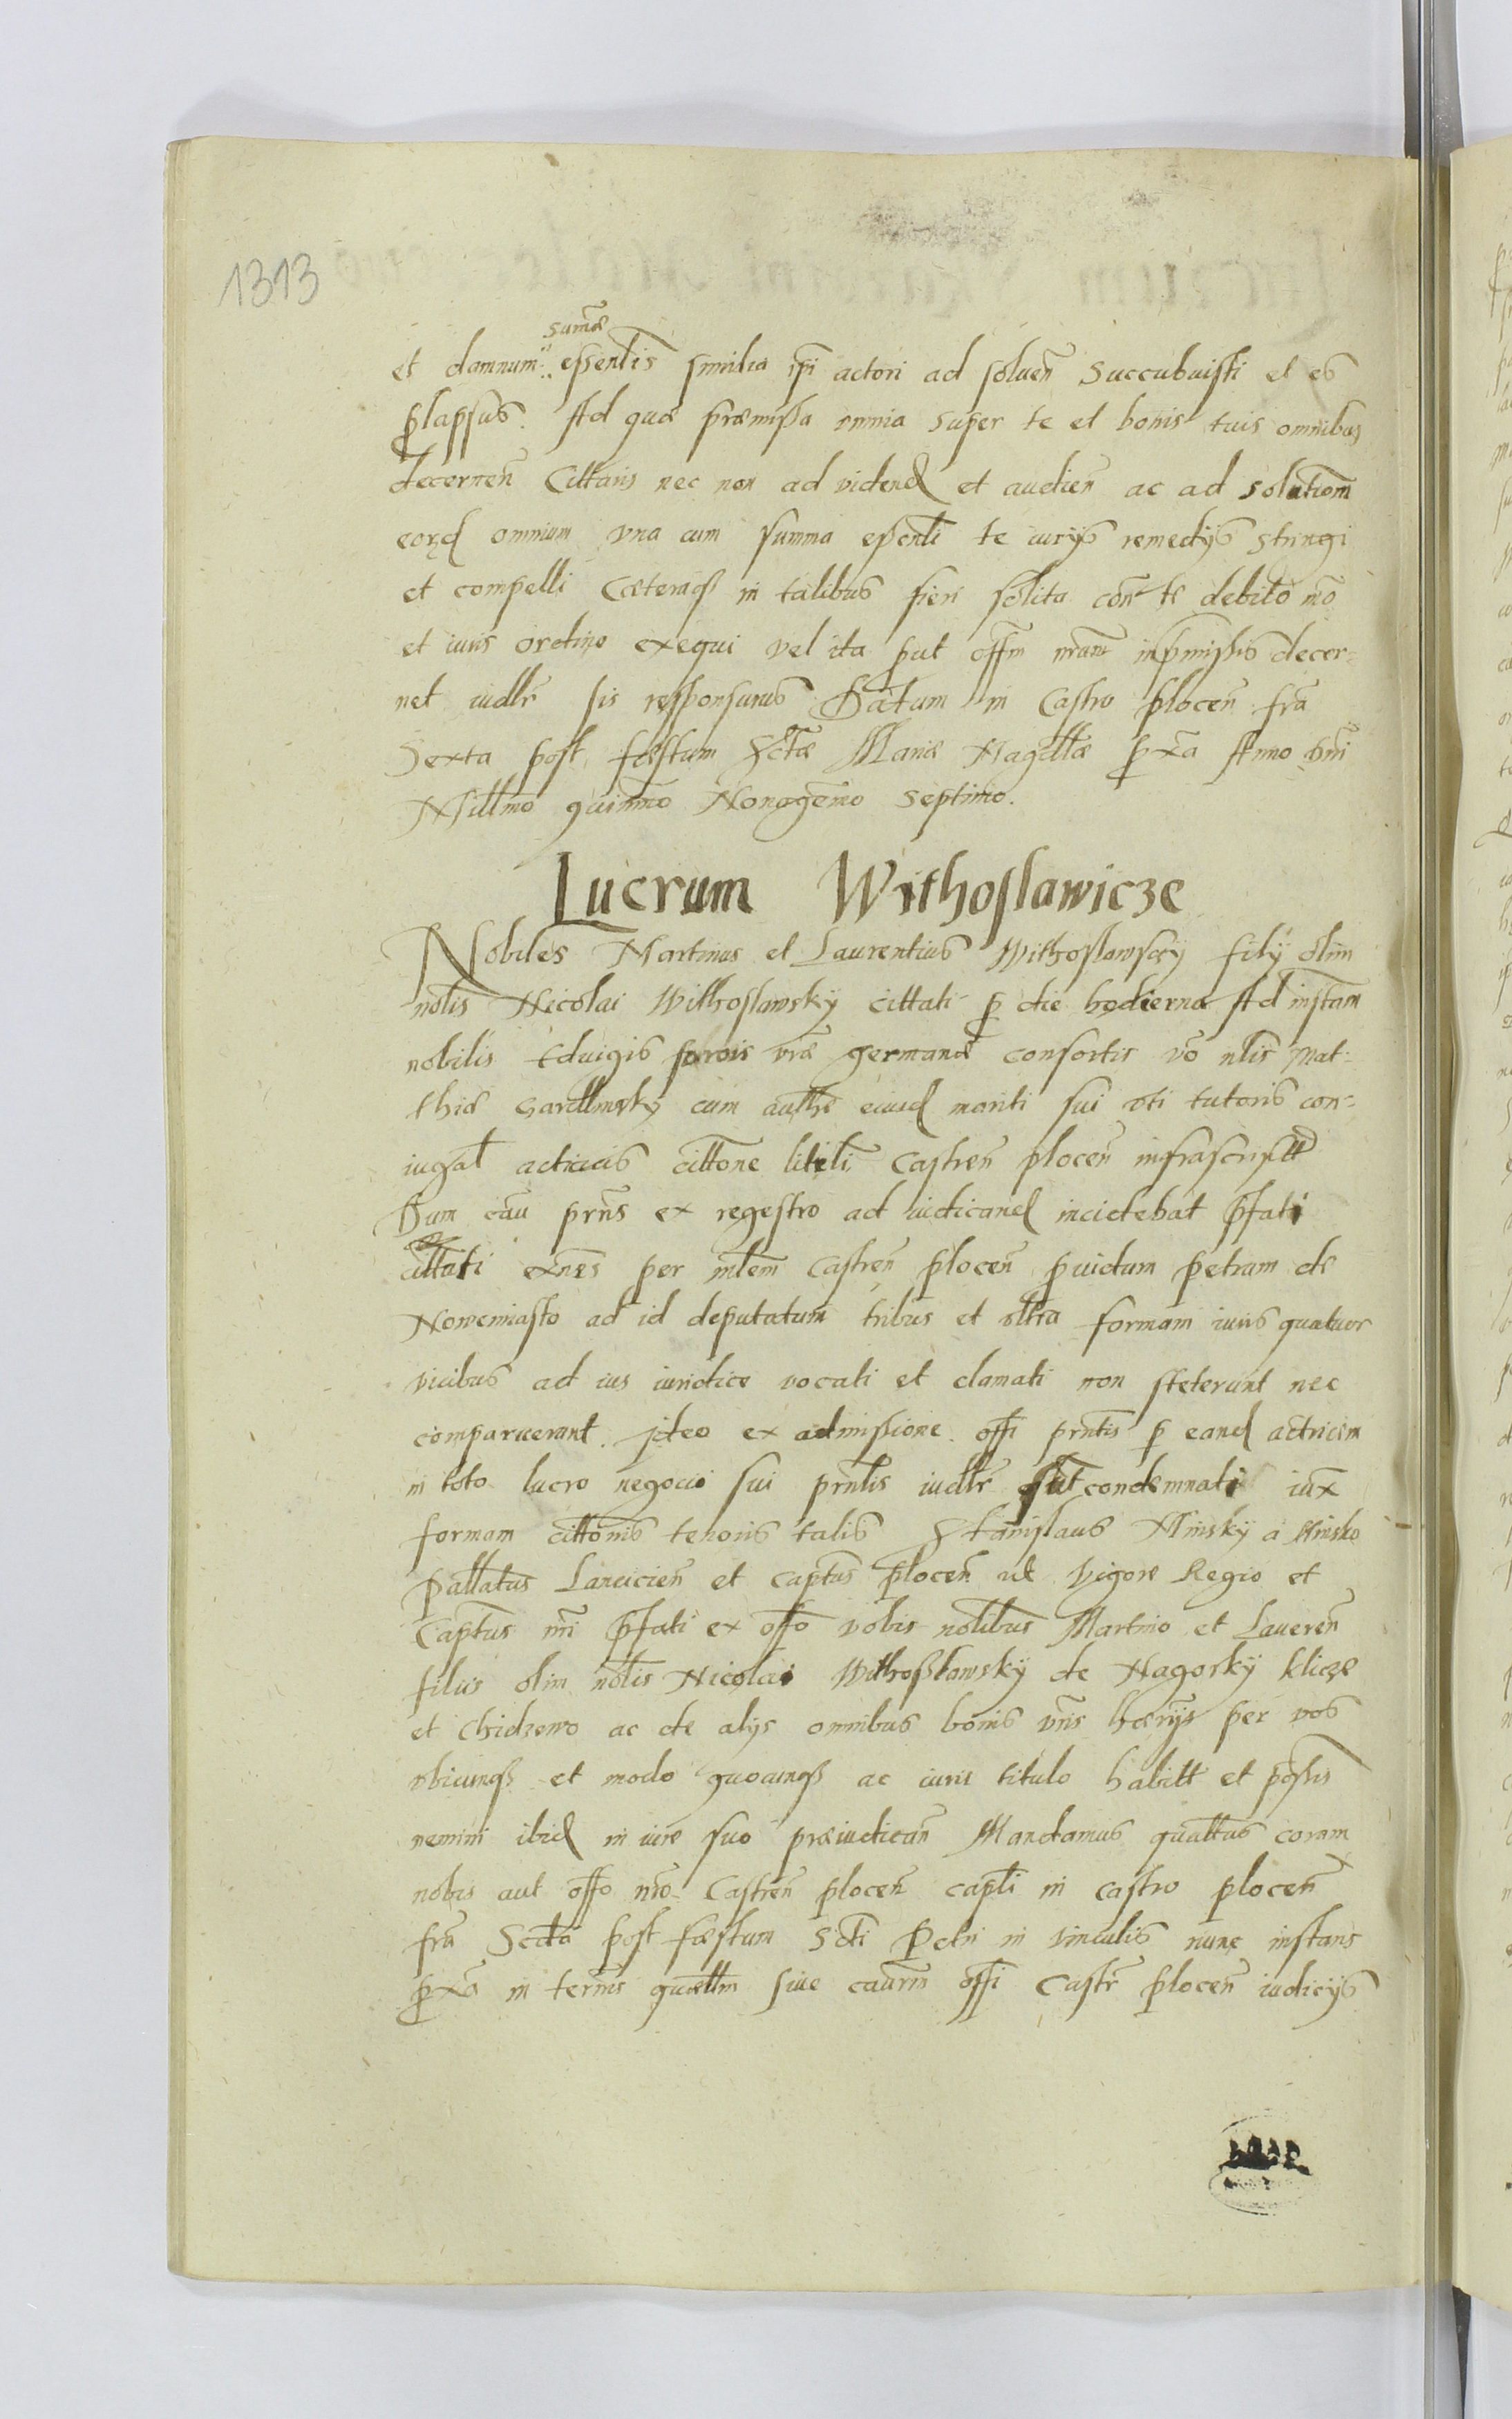 1313
sum̃æ
et damnum essent̃is similia ip̃i actori ad soluen̄ Succubuisti et es
ꝑlapsus. Ad quæ præmissa omnia super te et bonis tuis omnibus
decernen̄ Cittaris nec non ad videnḍ et audien̄ ac ad solutionẽ
eorḍ omnium vna cum summa essentĩ te iurÿs remedÿs stringi
et compelli Cæteraqß in talibus fieri solita con̄ te debito m̃o
et iuris ordine exequi vel ita ꝓut off̃m nr̃um in p̃missis decer=
net iudlr̃ sis responsurus Datum in Castro plocen̄ fr̃a
Sexta post fæstum Sctæ Mariæ Magdllæ ꝓxã Anno Dnĩ
Millm̃o quinm̃o Nonogem̃o Septimo.
Lucrum Withoslawicze
Nobiles Martinus et Laurentius Withoslawscÿ filÿ olim
nolĩs Nicolai Withoslawskÿ cittati ꝓ die hodierna Ad instam̃
nobilis Eduigis sororis vr̃æ germanæ consortis vo nlĩs Mat=
thiæ cum authẽ eiusḍ mariti sui vti tutoris con=
iugal̃ actricis citt̃one literlĩ Castren̄ plocen̄ infrascript̃
Dum cau prñs ex regestro ad iudicanḍ incidebat p̃fati
cittati ex̃nes per mlẽm Castren̄ plocen̄ ꝓuidum petrum de
Nowemiasto ad id deputatum tribus et vltra formam iuris quatuor
vicibus ad ius iuridice vocati et clamati non steterunt nec
comparuerunt. Ideo ex admissione off̃i prñtis ꝑ eanḍ actricem
in toto lucro negocii sui prñtis iudlr̃ sũt condemnati iux̃
formam citt̃onis tenoris talis Stanislaus Minskÿ a Minsko
Pallatũs Lancicien̄ et captũs plocen̄ ac Vigore Regio et
Captũs nr̃i p̃fati ex off̃o vobis nolĩbus Martino et Lauren̄
filiis olim nolĩs Nicolai Withosławskÿ de Nagorkÿ klicze
et Chidzewo ac de alÿs omnibus bonis vr̃is hærÿs per vos
vbicunqß et modo quocunqß ac iuris titulo habitt et poss̃is
nemini ibiḍ in iure suo præiudican̄ Mandamus quattũs coram
nobis aut off̃o nr̃o Castren̄ plocen̄ caplĩ in castro plocen̄
fr̃a Scdã post fæstum Scti Petri in vinculis nunc instans
ꝓxã in term̃s quærellm̃ siue cauarm̃ off̃i Castr̃ plocen̄ iudicÿs